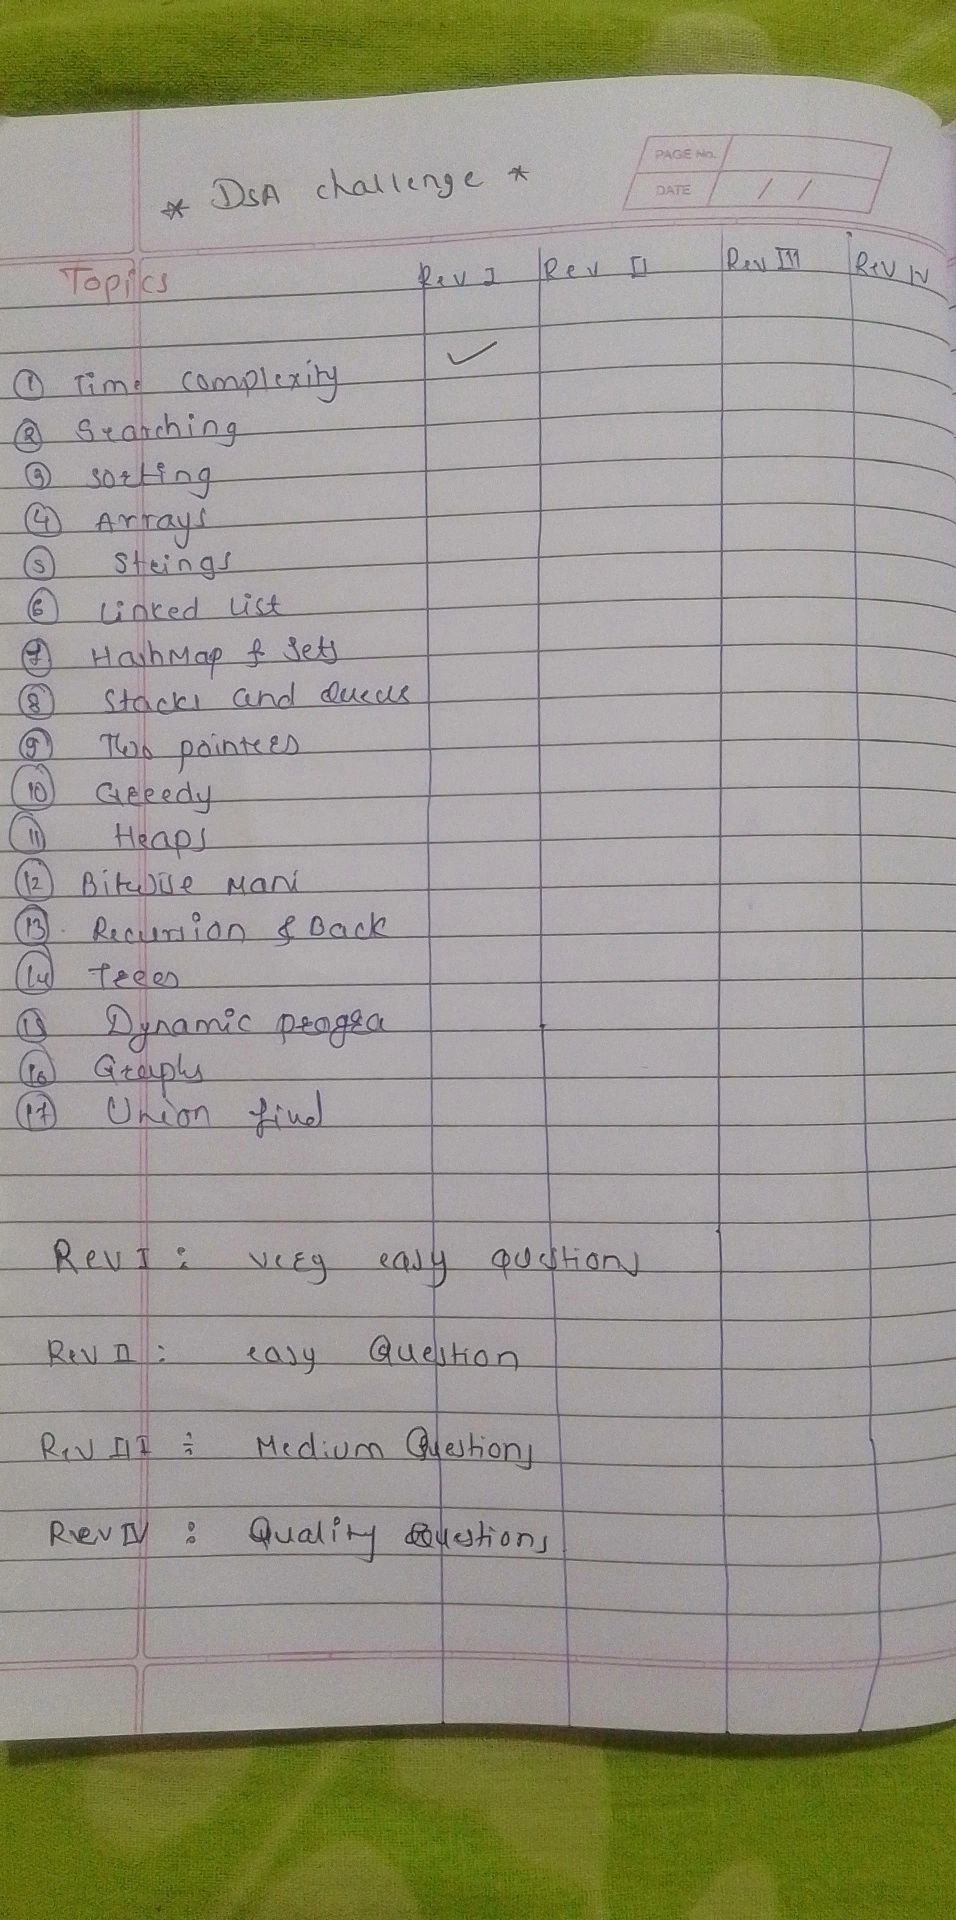 * DSA challenge *
PAGE No.
DATE / /
Topics Rev I Rev II Rev III Rev IV
① Time complexity ✓
② Searching
③ Sorting
④ Arrays
⑤ Strings
⑥ Linked List
⑦ HashMap & Sets
⑧ Stacks and Queus
⑨ Two pointers
⑩ Greedy
⑪ Heaps
⑫ Bitwise Mani
⑬ Recursion & Back
⑭ Trees
⑮ Dynamic progra
⑯ Graphs
⑰ Union find
Rev I : very easy questions
Rev II : easy Question
Rev III : Medium Questions
Rev IV : Quality Questions